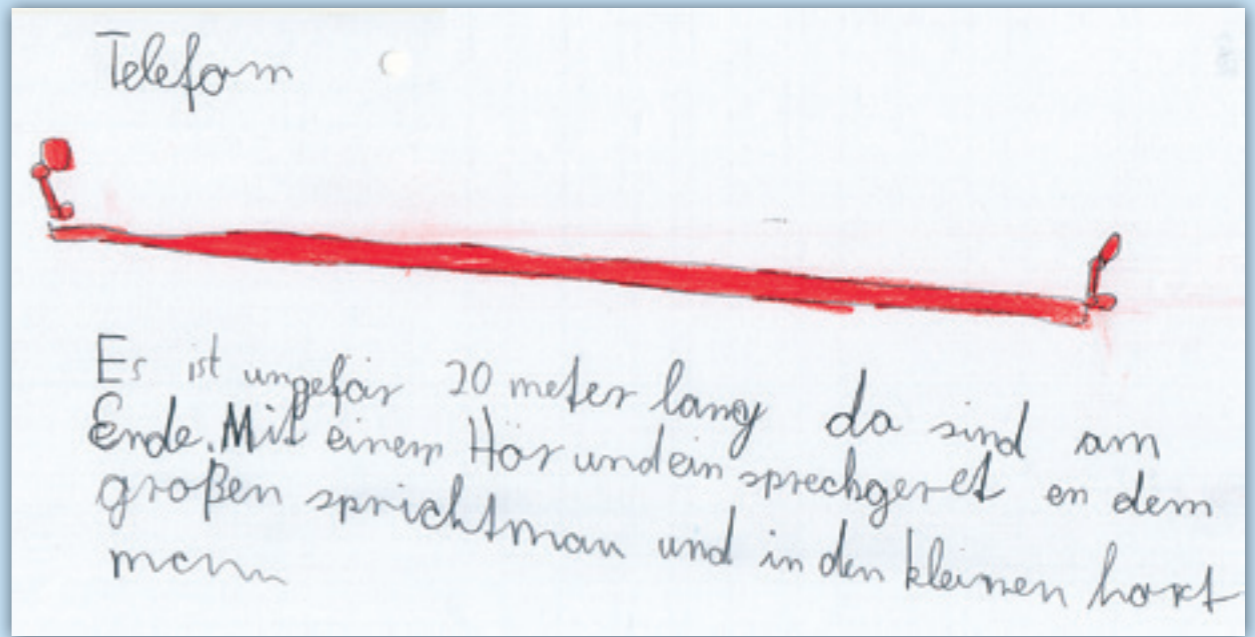 Telefom
Es ist ungefär 20 meter lang da sind am
Ende. Mit einem Hör undein sprechgeret en dem
großen sprichtman und in den kleinen hort
man